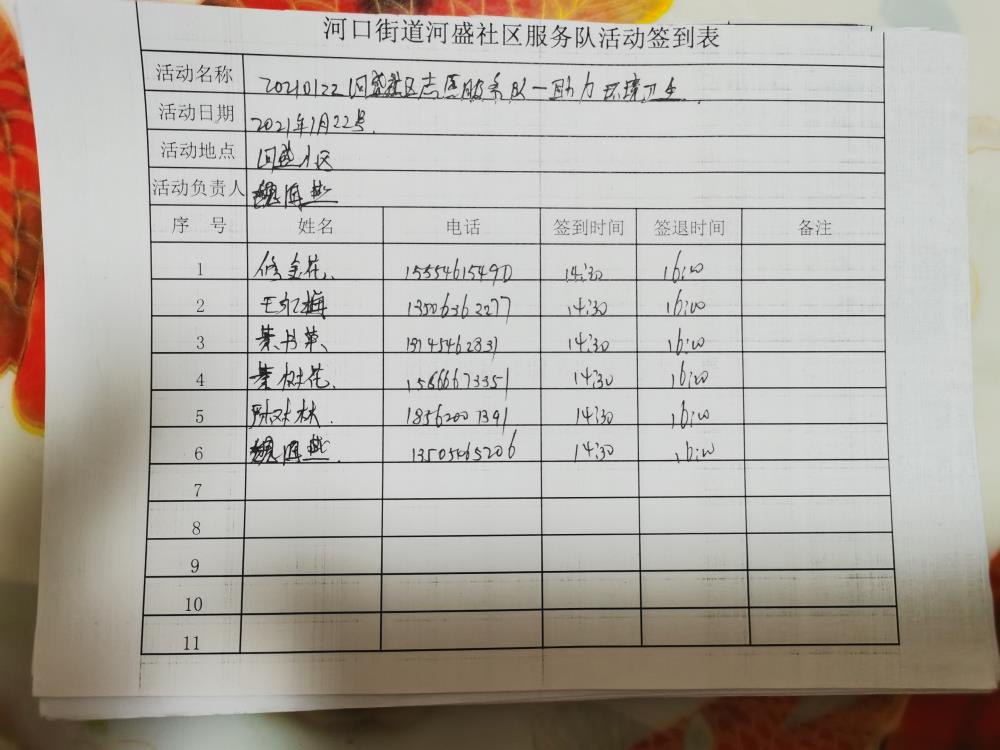 河口街道河盛社区服务队活动签到表
活动名称 20210122河盛社区志愿服务队一助力环境卫生
活动日期 2021年1月22号
活动地点 河盛小区
活动负责人 魏海燕
序 号 姓名 电话 签到时间 签退时间 备注
1 15554615490 14:30 16:00
2 王红梅 13506362277 14:30 16:00
3 14:30 16:00
4 15666673351 14:30 16:00
5 18562001391 14:30 16:00
6 魏海燕 13505465206 14:30 16:00
7
8
9
10
11